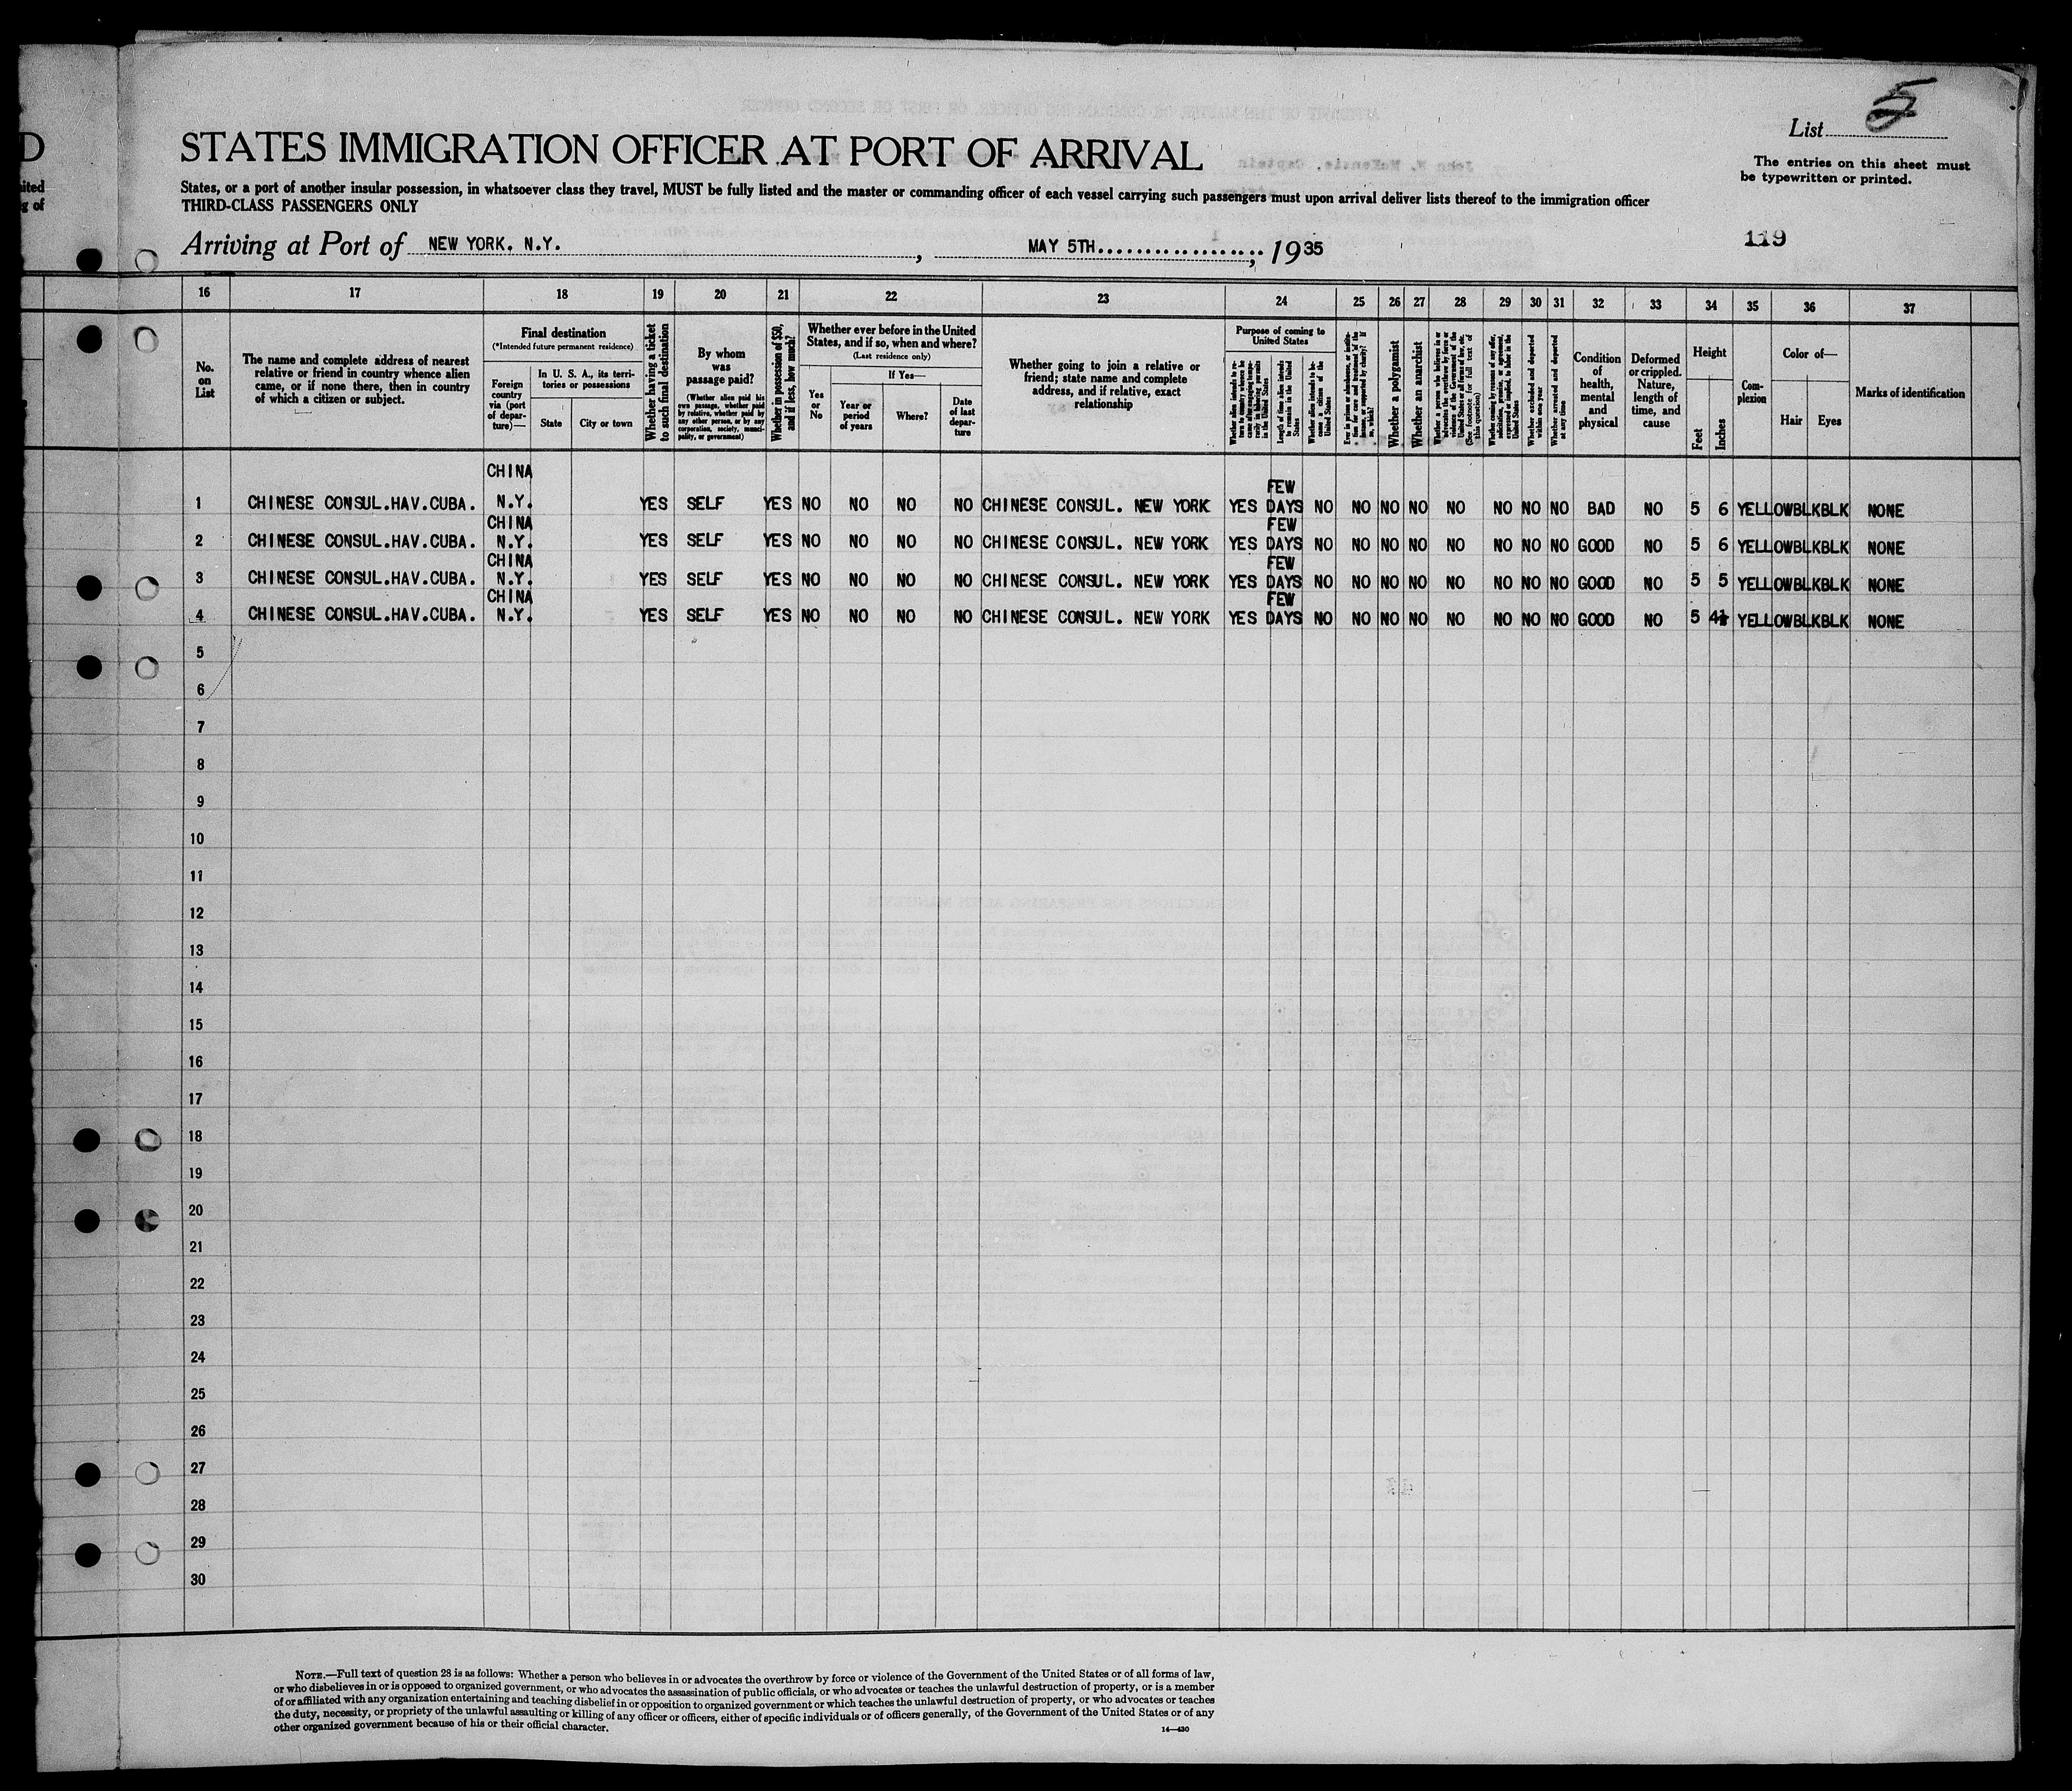 5
List
The entries on this sheet must
be typewritten or printed.
D
STATES IMMIGRATION OFFICER AT PORT OF ARRIVAL
ited
g of
States, or a port of another insular possession, in whatsoever class they travel, MUST be fully listed and the master or commanding officer of each vessel carrying such passengers must upon arrival deliver lists thereof to the immigration officer
THIRD-CLASS PASSENGERS ONLY
Arriving at Port of NEW YORK. N.Y. , MAY 5TH. , 1935
119
16 17 18 19 20 21 22 23 24 25 26 27 28 29 30 31 32 33 34 35 36 37
No.
on
List
The name and complete address of nearest
relative or friend in country whence alien
came, or if none there, then in country
of which a citizen or subject.
Final destination
(*Intended future permanent residence)
Foreign
country
via (port
of depar-
ture)—
In U. S. A., its terri-
tories or possessions
State
City or town
Whether having a ticket
to such final destination
By whom
was
passage paid?
(Whether alien paid his
own passage, whether paid
by relative, whether paid by
any other person, or by any
corporation, society, munici-
pality, or government)
Whether in possession of $50,
and if less, how much?
Whether ever before in the United
States, and if so, when and where?
(Last residence only)
Yes
or
No
If Yes—
Year or
period
of years
Where?
Date
of last
depar-
ture
Whether going to join a relative or
friend; state name and complete
address, and if relative, exact
relationship
Purpose of coming to
United States
Length of time alien intends
to remain in the United
States
Whether alien intends to be-
come a citizen of the
United States
Whether a polygamist
Whether an anarchist
Whether excluded and deported
within one year
Whether arrested and deported
at any time
Condition
of
health,
mental
and
physical
Deformed
or crippled.
Nature,
length of
time, and
cause
Height
Feet
Inches
Com-
plexion
Color of—
Hair
Eyes
Marks of identification
CHINA FEW
1 CHINESE CONSUL.HAV.CUBA. N.Y. YES SELF YES NO NO NO NO CHINESE CONSUL. NEW YORK YES DAYS NO NO NO NO NO NO NO NO BAD NO 5 6 YELLOWBLKBLK NONE
CHINA FEW
2 CHINESE CONSUL.HAV.CUBA. N.Y. YES SELF YES NO NO NO NO CHINESE CONSUL. NEW YORK YES DAYS NO NO NO NO NO NO NO NO GOOD NO 5 6 YELLOWBLKBLK NONE
CHINA FEW
3 CHINESE CONSUL.HAV.CUBA. N.Y. YES SELF YES NO NO NO NO CHINESE CONSUL. NEW YORK YES DAYS NO NO NO NO NO NO NO NO GOOD NO 5 5 YELLOWBLKBLK NONE
CHINA FEW
4 CHINESE CONSUL.HAV.CUBA. N.Y. YES SELF YES NO NO NO NO CHINESE CONSUL. NEW YORK YES DAYS NO NO NO NO NO NO NO NO GOOD NO 5 4½ YELLOWBLKBLK NONE
5
6
7
8
9
10
11
12
13
14
15
16
17
18
19
20
21
22
23
24
25
26
27
28
29
30
NOTE.—Full text of question 28 is as follows: Whether a person who believes in or advocates the overthrow by force or violence of the Government of the United States or of all forms of law,
or who disbelieves in or is opposed to organized government, or who advocates the assassination of public officials, or who advocates or teaches the unlawful destruction of property, or is a member
of or affiliated with any organization entertaining and teaching disbelief in or opposition to organized government or which teaches the unlawful destruction of property, or who advocates or teaches
the duty, necessity, or propriety of the unlawful assaulting or killing of any officer or officers, either of specific individuals or of officers generally, of the Government of the United States or of any
other organized government because of his or their official character.
14—430